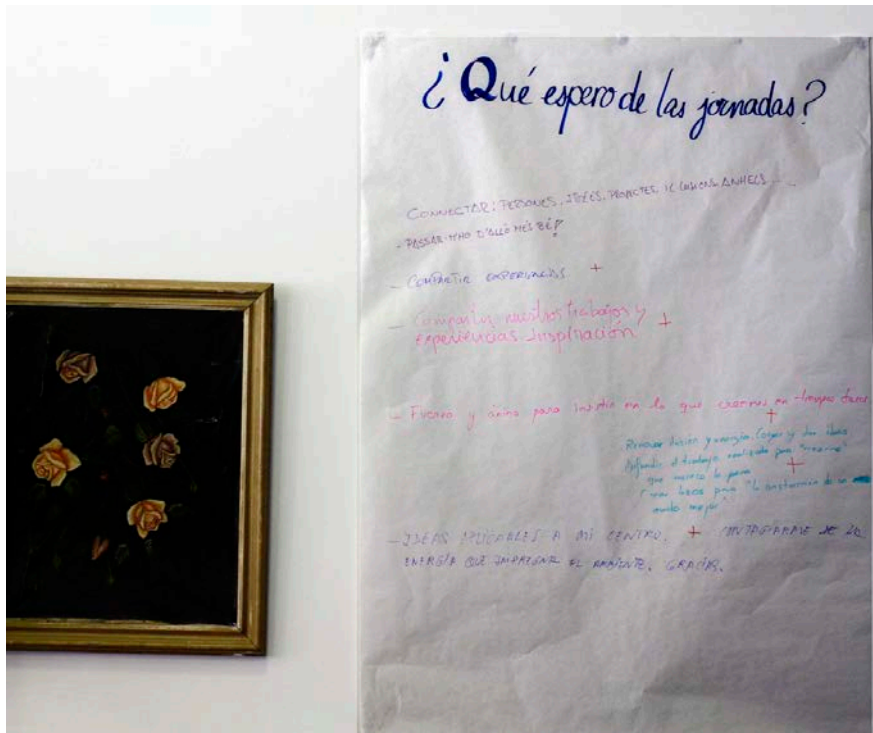 ¿Qué espero de las jornadas?
CONNECTAR: PERSONES, IDEES, PROJECTES, IL·LUSIONS, ANHELS...
- PASSAR-HHO D'ALLÒ MÉS BÉ!
- COMPARTIR EXPERIENCIAS +
- Compartir nuestros trabajos y +
experiencias. Inspiración
- Fuerza y ánimo para insistir en lo que creemos en tiempos duros
+
Renovar ilusión y energía. Coger y dar ideas
Difundir el trabajo realizado para
que merece la pena +
Crear lazos para "la construcción de un
mundo mejor"
- IDEAS APLICABLES A MI CENTRO. + CONTAGIARME DE LA
ENERGÍA QUE IMPREGNA EL AMBIENTE. GRACIAS.